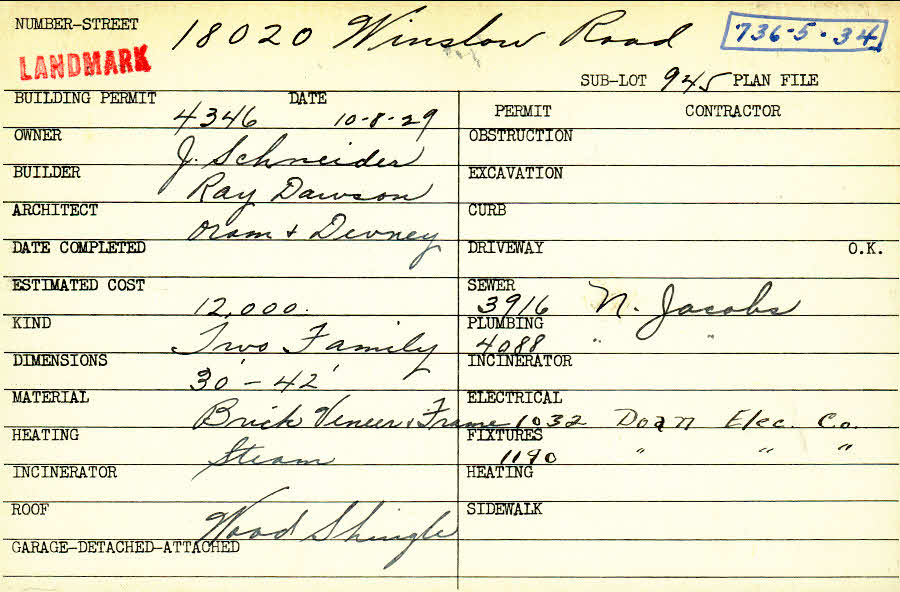 NUMBER-STREET 18020 Winslow Road 736-5-34
LANDMARK
SUB-LOT 945 PLAN FILE
BUILDING PERMIT 4346 DATE 10-8-29
OWNER J. Schneider
BUILDER Ray Dawson
ARCHITECT Oram + Devney
DATE COMPLETED
ESTIMATED COST 12,000.
KIND Two Family
DIMENSIONS 30' - 42'
MATERIAL Brick Veneer + Frame
HEATING Steam
INCINERATOR
ROOF Wood Shingle
GARAGE-DETACHED-ATTACHED
PERMIT CONTRACTOR
OBSTRUCTION
EXCAVATION
CURB
DRIVEWAY O.K.
SEWER 3916 N. Jacobs
PLUMBING 4088 " "
INCINERATOR
ELECTRICAL 1032 Doan Elec. Co.
FIXTURES 1190 " " "
HEATING
SIDEWALK